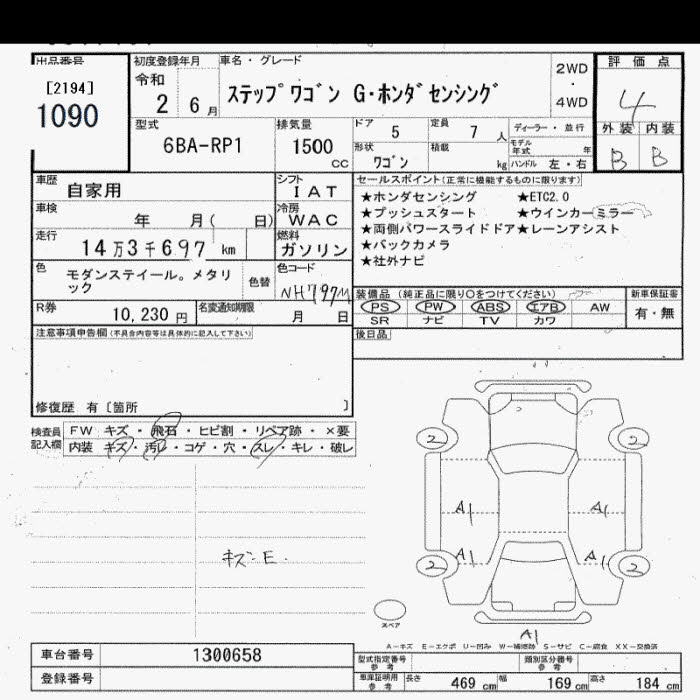 出品番号
[2194]
1090
初度登録年月
令和
2 6月
車名・グレード
ステップワゴン G・ホンダセンシング
2WD
・
4WD
評価点
4
外装 内装
B B
型式
6BA-RP1
排気量
1500
CC
ドア 5
定員 7 人
ディーラー・並行
モデル年式 年
形状 ワゴン
積載 kg
ハンドル 左・右
車歴 自家用
シフト IAT
車検 年 月( 日)
冷房 WAC
走行 14万3千697 km
燃料 ガソリン
色 モダンスティール。メタリック
色替
色コード NH797M
R券 10,230 円
名変通知期限 月 日
セールスポイント(正常に機能するものに限ります)
★ホンダセンシング ★ETC2.0
★プッシュスタート ★ウインカーミラー
★両側パワースライドドア ★レーンアシスト
★バックカメラ
★社外ナビ
装備品 (純正品に限り○をつけてください)
PS PW ABS エアB AW
SR ナビ TV カワ
新車保証書
有・無
後日品
注意事項申告欄(不具合内容等は具体的に記入して下さい)
修復歴 有〔箇所 〕
検査員記入欄
FW キズ・飛石・ヒビ割・リペア跡・×要
内装 キズ・汚レ・コゲ・穴・スレ・キレ・破レ
キズ・E.
2 2
A1 A1
A1 A1
2 2
スペア
A1
A-キズ E-エクボ U-凹み W-補修跡 S-サビ C-腐食 XX-交換済
車台番号 1300658
登録番号
型式指定番号 参考
類別区分番号 参考
車庫証明用 参考
長さ 469 cm 幅 169 cm 高さ 184 cm